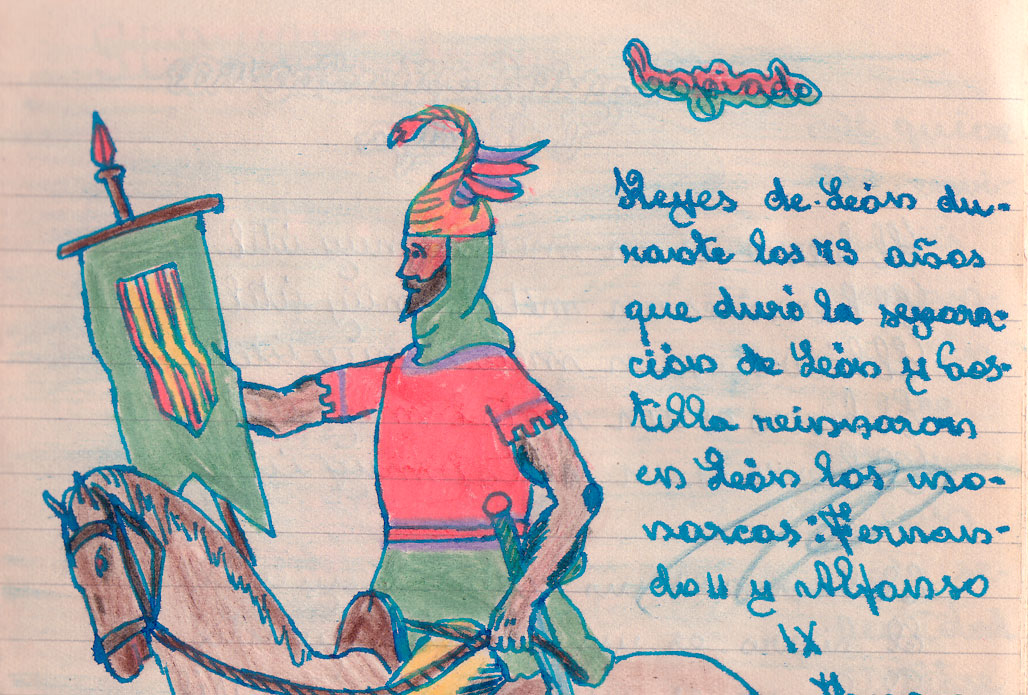 Reyes de León du-
rante los 73 años
que duró la separa-
ción de León y Cas-
tilla reinaron
en León los mo-
narcas: Fernan-
do II y Alfonso
IX